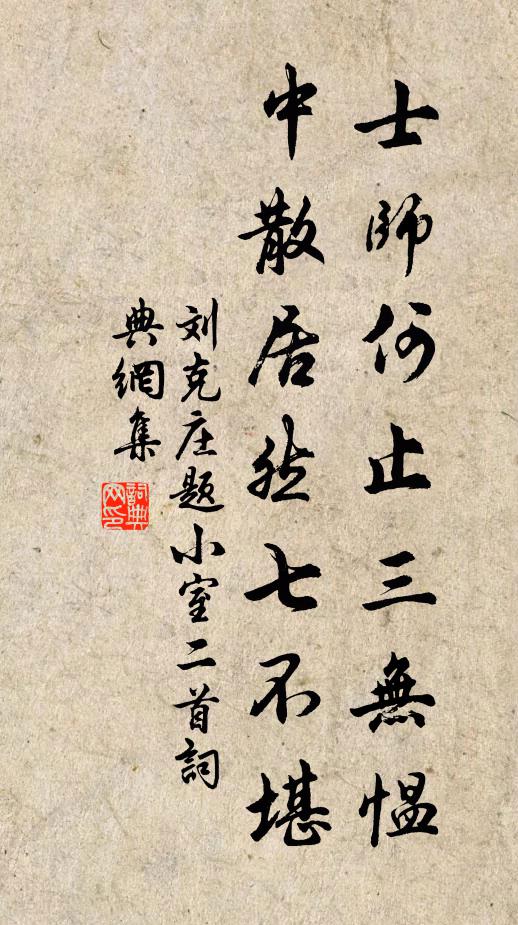 士師何止三無愠
中散居然七不堪
刘克庄题小室二首詞
典網集
詞典
网印